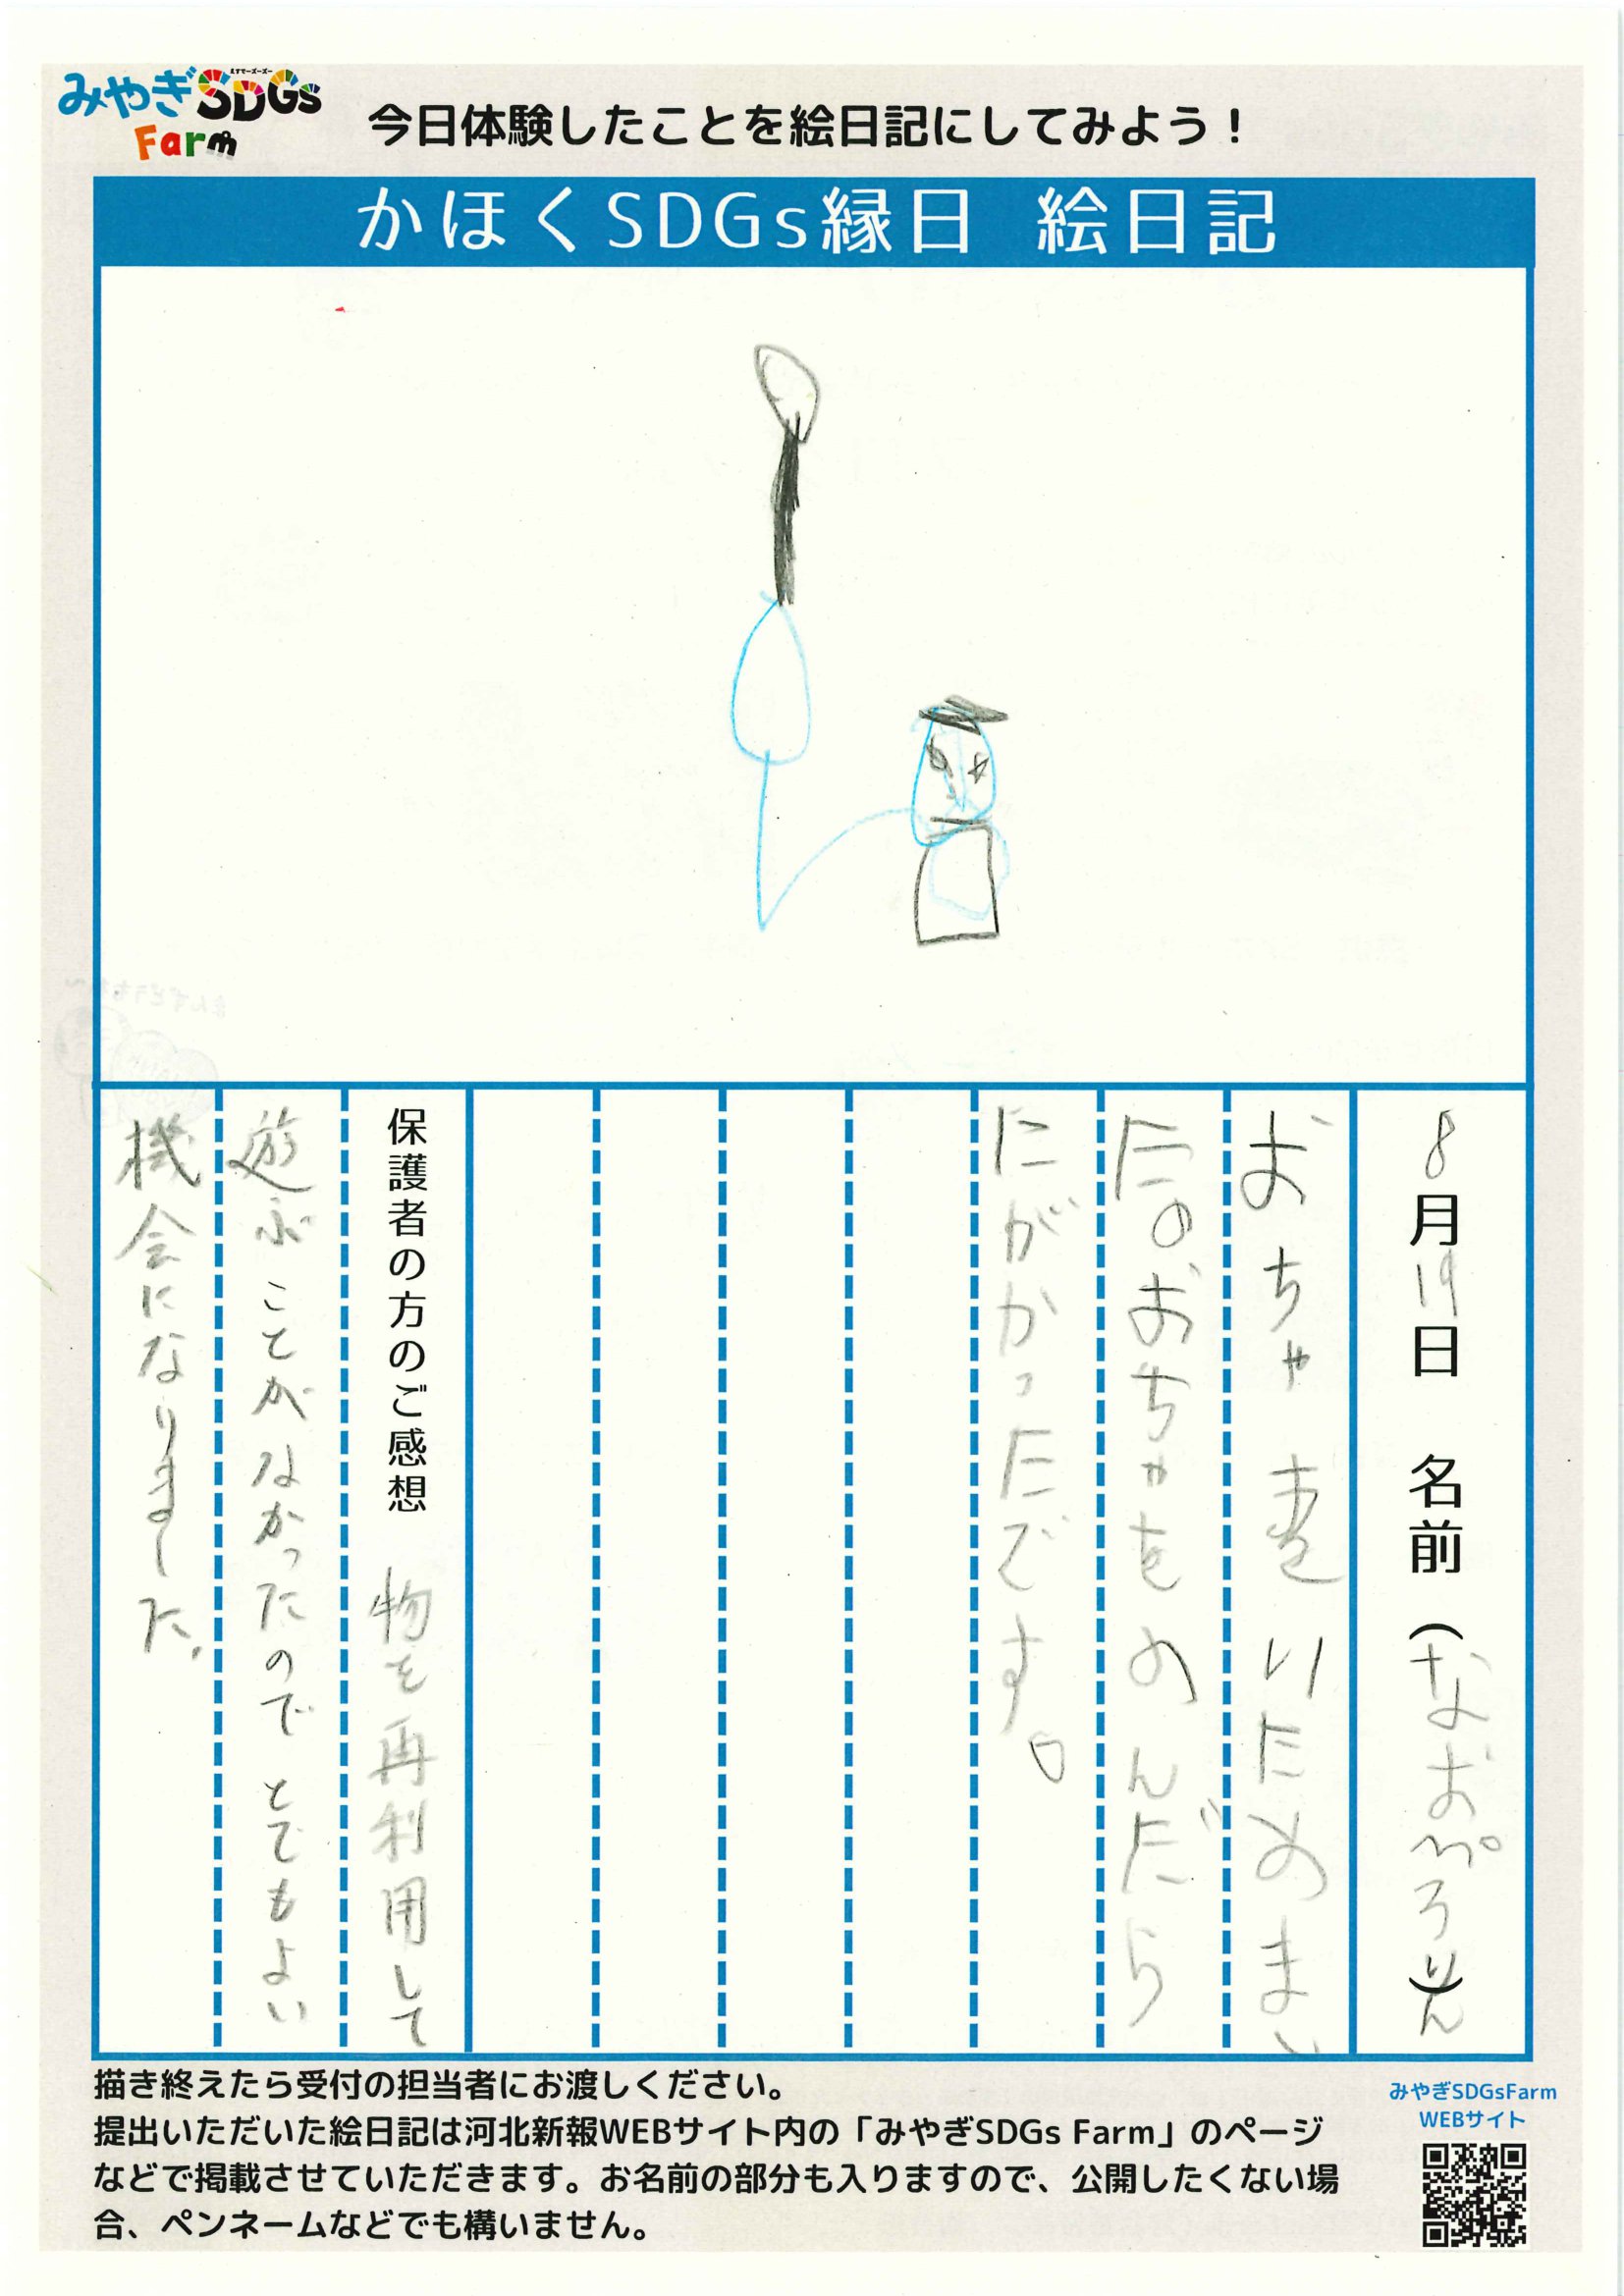 みやぎSDGs
エスディージーズ
Farm
今日体験したことを絵日記にしてみよう！
かほくSDGs縁日 絵日記
8月19日 名前（なおぷろりん）
おちゃをいためまし
たのおちゃをのんだら
にがかったです。
保護者の方のご感想 物を再利用して
遊ぶことがなかったのでとてもよい
機会になりました。
描き終えたら受付の担当者にお渡しください。
提出いただいた絵日記は河北新報WEBサイト内の「みやぎSDGs Farm」のページ
などで掲載させていただきます。お名前の部分も入りますので、公開したくない場
合、ペンネームなどでも構いません。
みやぎSDGsFarm
WEBサイト